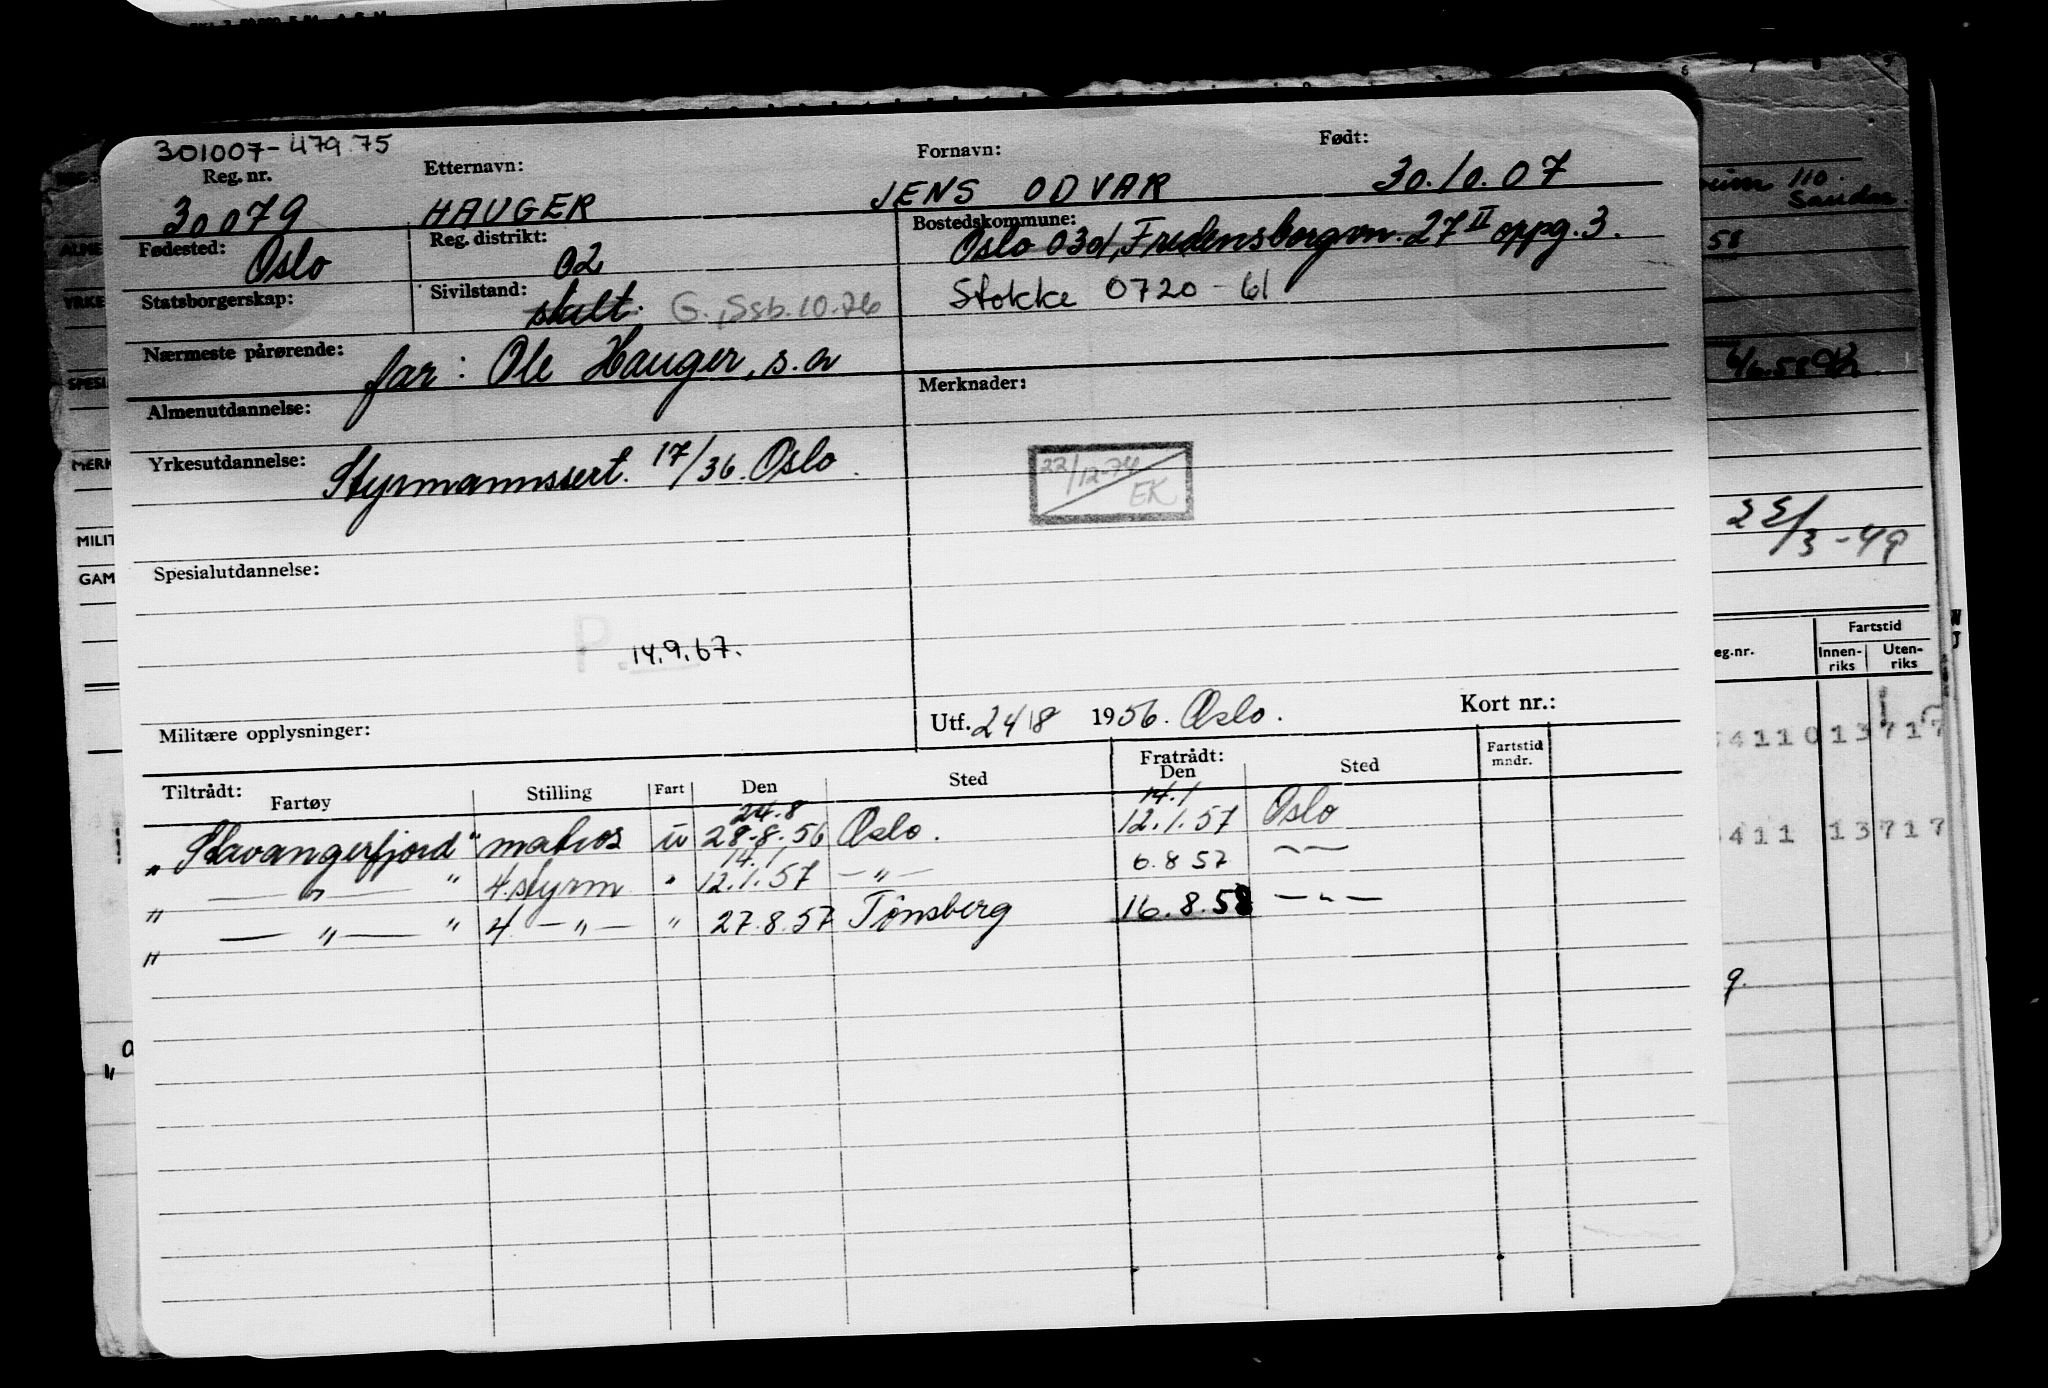 301007-479.75
Reg. nr. Etternavn: Fornavn: Født:
30079 HAUGER JENS ODVAR 30.10.07
Fødested: Oslo Reg. distrikt: 02 Bostedskommune: Oslo 03d, Fredensborgvn. 27 II oppg. 3.
Statsborgerskap: Sivilstand: skilt. G., Ssb. 10.76 Stokke 0720 - 61
Nærmeste pårørende: far: Ole Hauger, s.a
Almenutdannelse: Merknader:
Yrkesutdannelse: Styrmannssert. 17/36. Oslo.
22/12-74 EK
Spesialutdannelse:
P. 14.9.67.
Militære opplysninger: Utf. 24/8 1956. Oslo. Kort nr.:
Tiltrådt: Fartøy Stilling Fart Den Sted Fratrådt: Den Sted Fartstid mndr.
24.8 14.1
"Stavangerfjord" matros u 28.8.56 Oslo. 12.1.57 Oslo
14.1
" — " — " 4. styrm " 12.1.57 — " — 6.8 57 — " —
" — " — " 4 — " — " 27.8.57 Tønsberg 16.8.58 — " —
110
58
22/3-49
MILIT
GAM
Fartstid
eg.nr. Innen-riks Uten-riks
411013717
411 13717